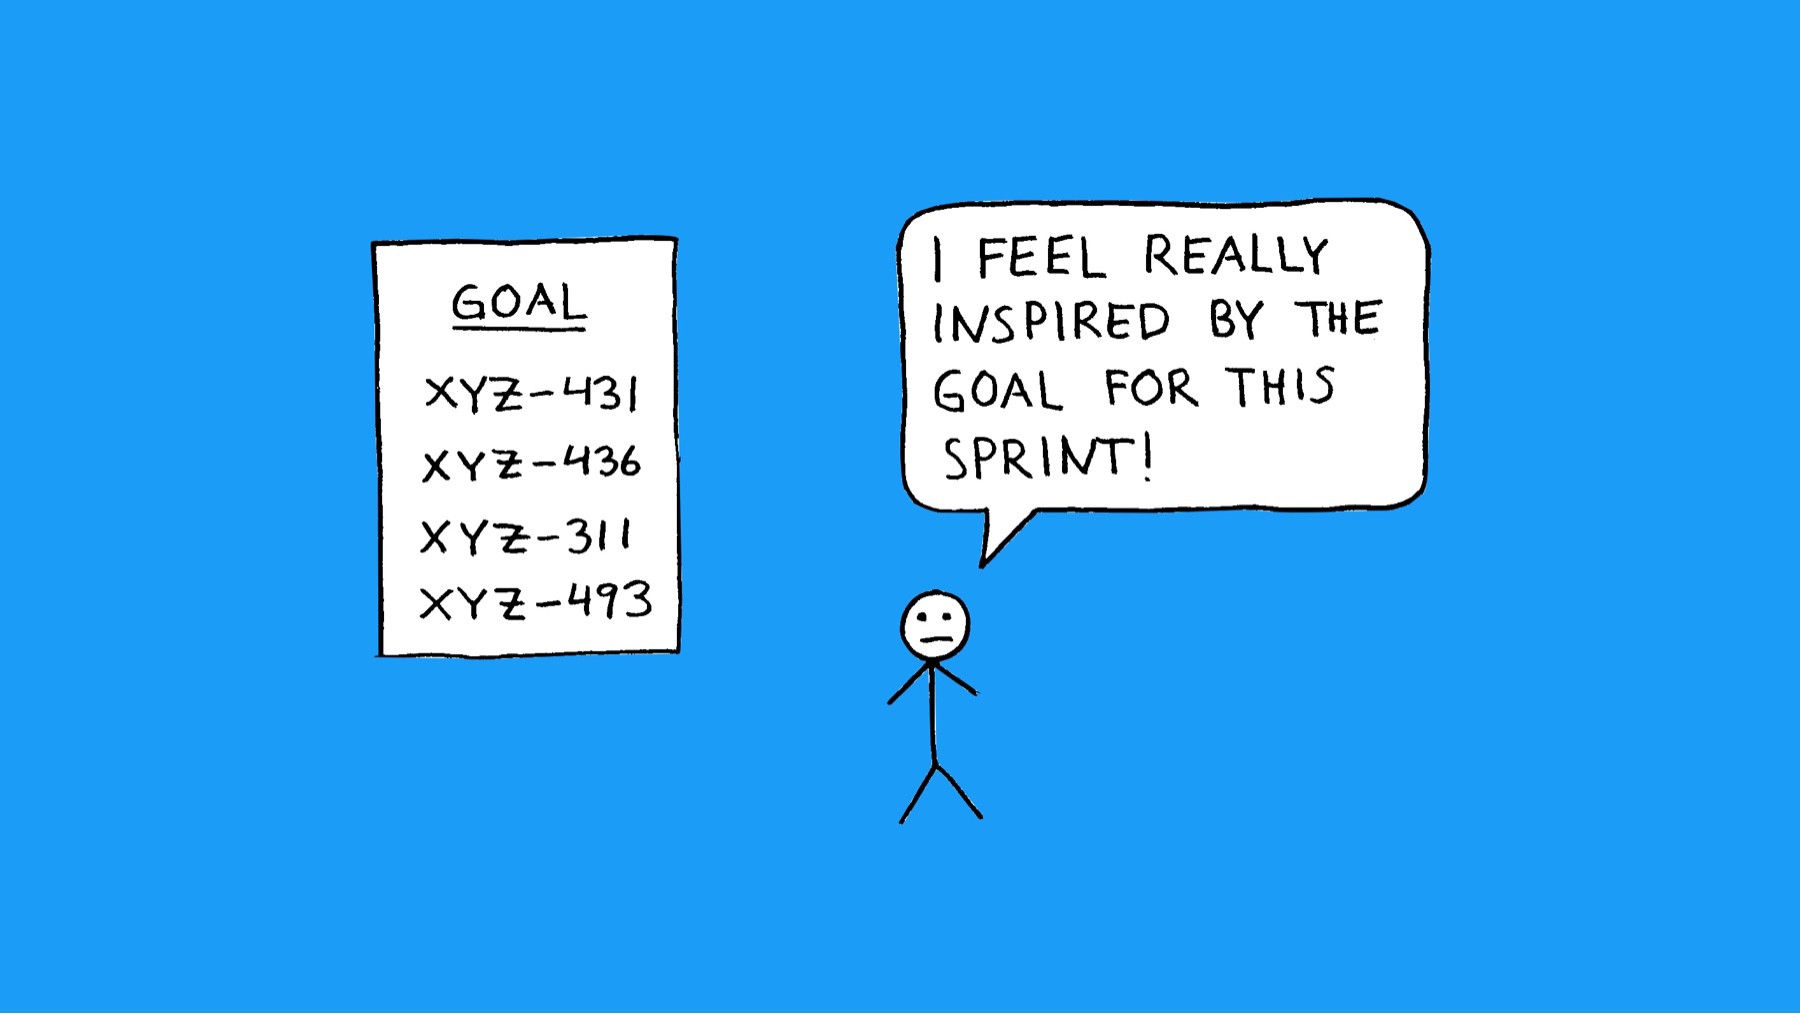 GOAL
XYZ-431
XYZ-436
XYZ-311
XYZ-493
I FEEL REALLY
INSPIRED BY THE
GOAL FOR THIS
SPRINT!